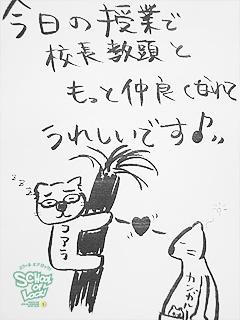 今日の授業で
校長教頭と
もっと仲良くなれて
うれしいです♪,,
コアラ
カンガルー
SCHOOL
OF
LOCK!